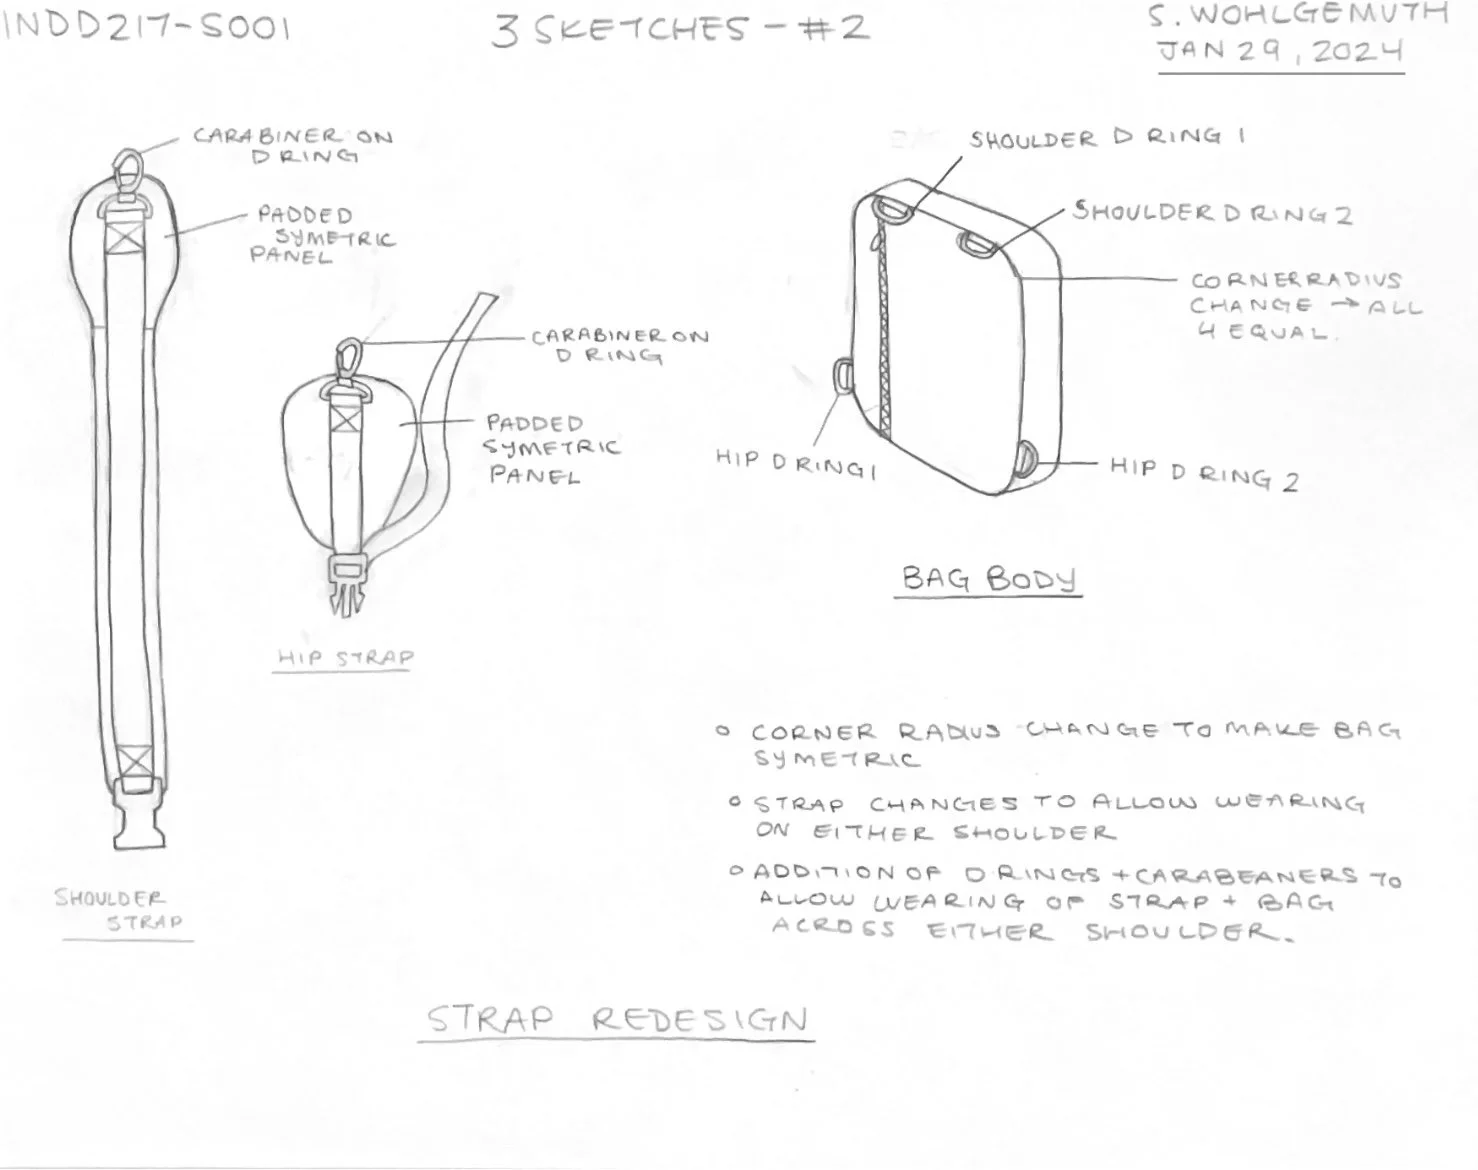 INDD217-S001
3 SKETCHES - #2
S. WOHLGEMUTH
JAN 29, 2024
CARABINER ON
D RING
PADDED
SYMETRIC
PANEL
SHOULDER
STRAP
CARABINER ON
D RING
PADDED
SYMETRIC
PANEL
HIP STRAP
SHOULDER D RING 1
SHOULDER D RING 2
CORNER RADIUS
CHANGE → ALL
4 EQUAL.
HIP D RING 1
HIP D RING 2
BAG BODY
○ CORNER RADIUS CHANGE TO MAKE BAG
SYMETRIC
○ STRAP CHANGES TO ALLOW WEARING
ON EITHER SHOULDER
○ ADDITION OF D RINGS + CARABEANERS TO
ALLOW WEARING OF STRAP + BAG
ACROSS EITHER SHOULDER.
STRAP REDESIGN